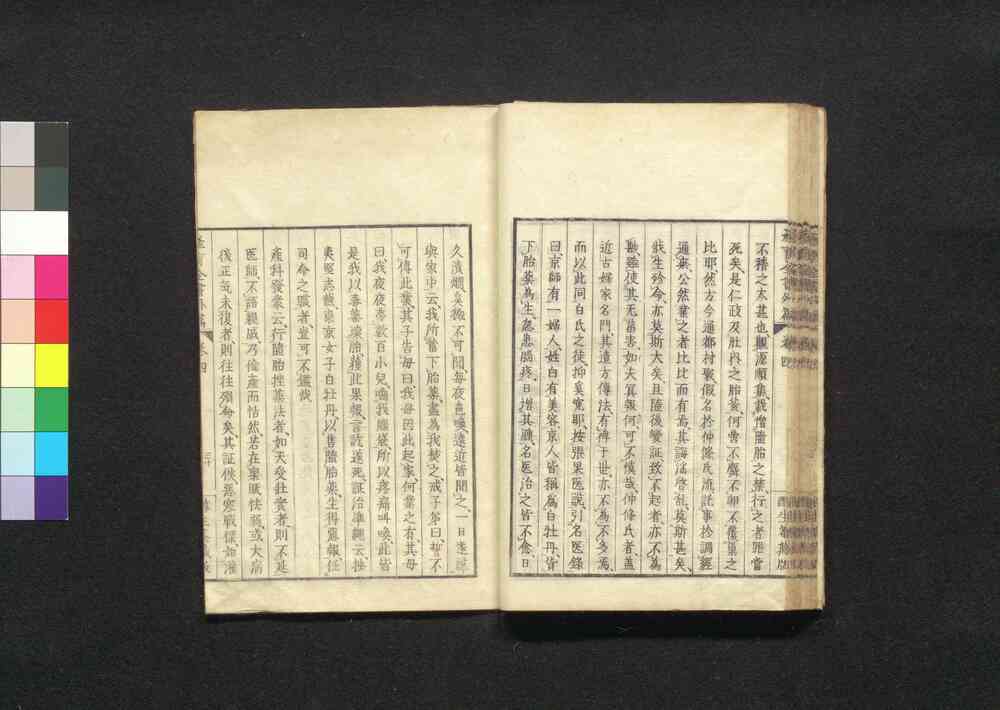 不稽之太甚也觀源順集載憎墮胎之業行之者罪當
死矣是仁政及肚內之胎莫何曾不麛不卵不覆巢之
比耶然方今通都村聚假名於仲條氏流託事於調經
通來公然業之者比比而有焉其誨淫啓亂莫斯甚矣
戕生殄命亦莫斯大矣且隨後變証致不起者亦不爲
尠雖使其无菑害如夫冥報何可不慎哉仲條氏者蓋
近古婦家名門其遺方傳法有裨于世亦不爲不多焉
而以此同白氏之徒抑矣寃耶按張杲医說引名医錄
曰京師有一婦人姓白有美容京人皆稱爲白牡丹皆
下胎藥爲生忽患腦疼日增其腫名医治之皆不愈日
久潰爛臭穢不可聞每夜聲喚遠近皆聞之一日遂說
與家中云我所蓄下胎藥盡爲我焚之戒子弟曰誓不
可傳此業其子告母曰我母因此起家何棄之有其母
曰我夜夜夢數百小兒嚙我腦袋所以疼痛叫喚此皆
是我以毒藥壞胎獲此果報言訖遂死証治準繩云挫
夷堅志載東京女子白牡丹以售墮胎藥生得寃報任
司命之職者豈可不鑑哉
產科發蒙云行墮胎挫藥法者如天受壯實者則不延
医師不語親戚乃倫產而恬然若在稟賦怯弱或大病
後正氣未復者則往往殞命矣其証候惡寒戰慄如灌